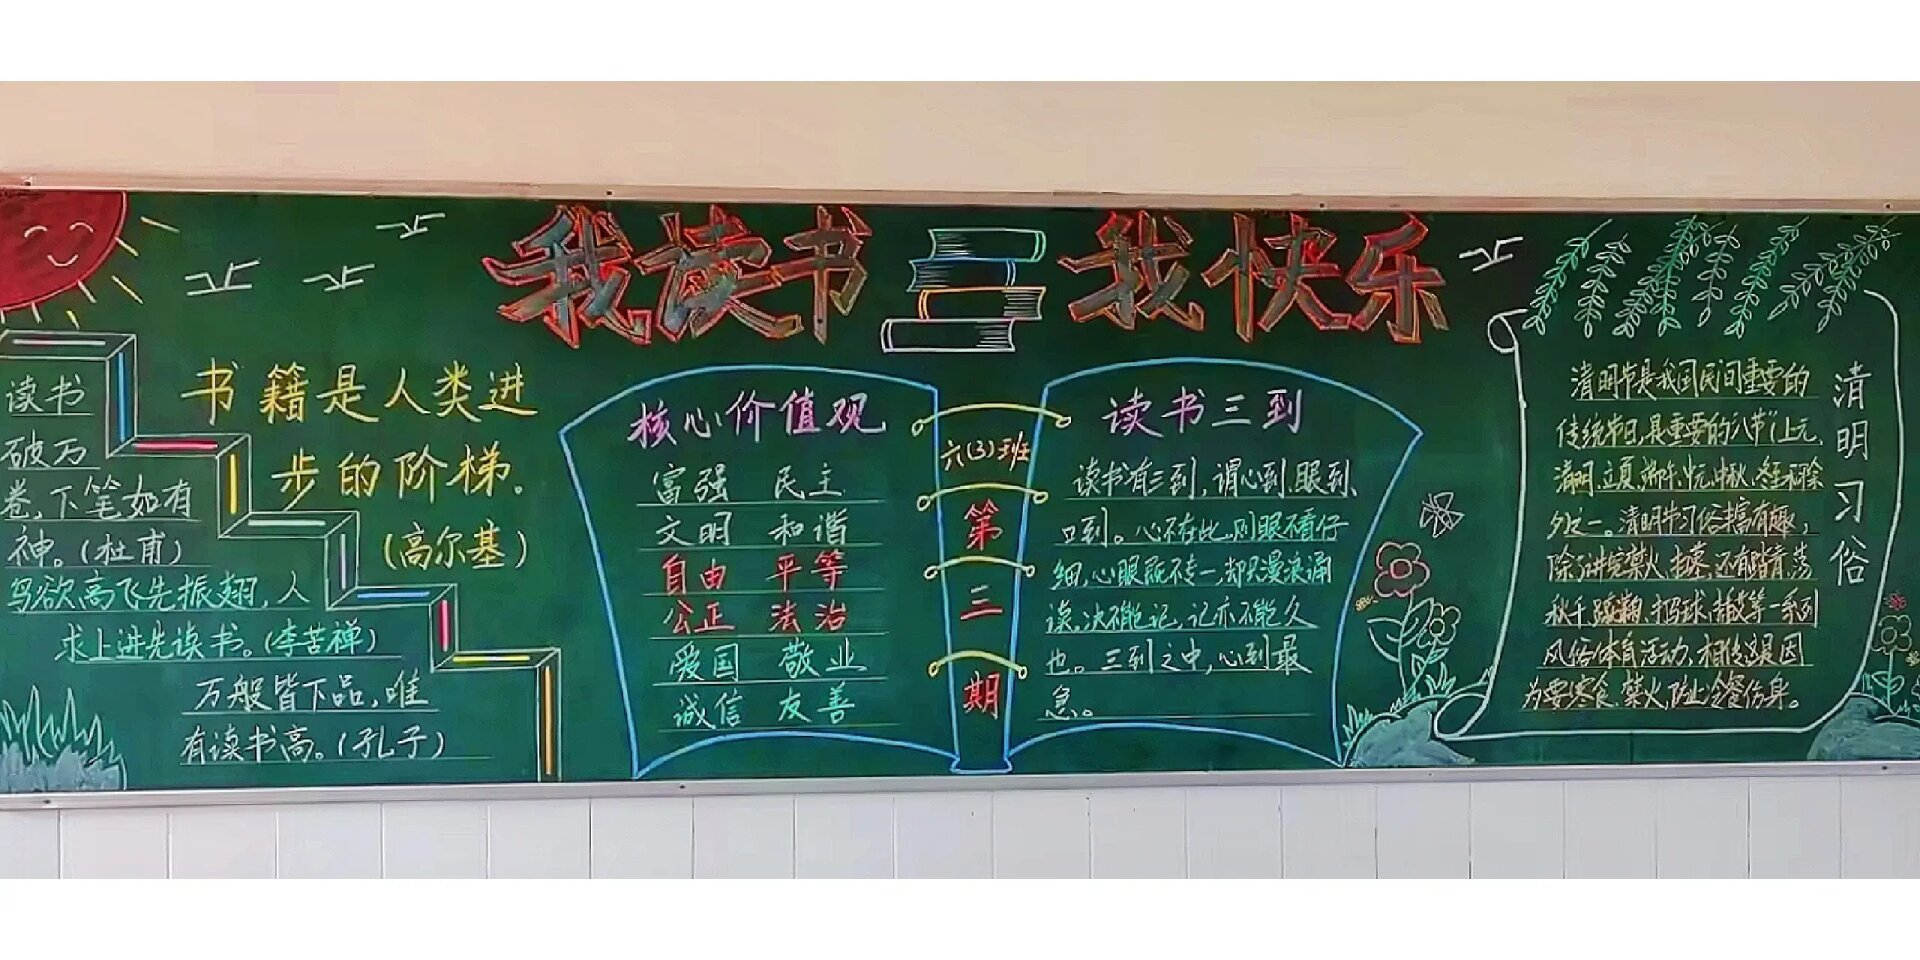 我读书 我快乐
书籍是人类进
步的阶梯。
(高尔基)
读书
破万
卷,下笔如有
神。(杜甫)
鸟欲高飞先振翅,人
求上进先读书。(李苦禅)
万般皆下品,唯
有读书高。(孔子)
核心价值观
富强 民主
文明 和谐
自由 平等
公正 法治
爱国 敬业
诚信 友善
六(3)班
第
三
期
读书三到
读书有三到,谓心到、眼到、
口到。心不在此,则眼不看仔
细,心眼既不专一,却只漫浪诵
读,决不能记,记亦不能久
也。三到之中,心到最
急。
清明习俗
清明节是我国民间重要的
传统节日,是重要的"八节"(上元、
清明、立夏、端午、中元、中秋、冬至和除
夕)之一。清明节习俗丰富有趣,
除了讲究禁火、扫墓,还有踏青、荡
秋千、蹴鞠、打马球、插柳等一系列
风俗体育活动,相传这是因
为要寒食、禁火,防止冷餐伤身。